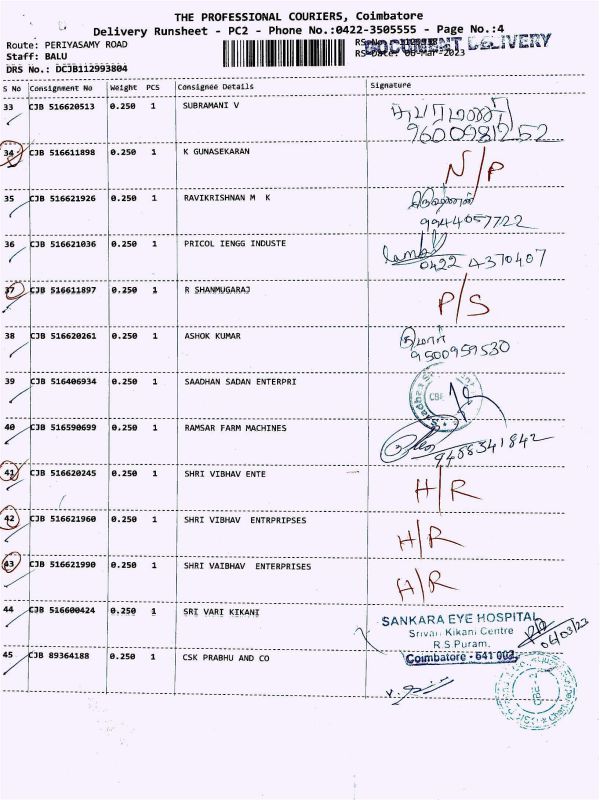 THE PROFESSIONAL COURIERS, Coimbatore
Delivery Runsheet - PC2 - Phone No.:0422-3505555 - Page No.:4
Route: PERIYASAMY ROAD
DOCUMENT DELIVERY
Staff: BALU
RS-Date: 06-Mar-2023
DRS No.: DCJB112993804
S No Consignment No Weight PCS Consignee Details Signature
33 CJB 516620513 0.250 1 SUBRAMANI V சுப்ரமணி
9600981252
34 CJB 516611898 0.250 1 K GUNASEKARAN N/P
35 CJB 516621926 0.250 1 RAVIKRISHNAN M K
9944057722
36 CJB 516621036 0.250 1 PRICOL IENGG INDUSTE
0422 4370407
37 CJB 516611897 0.250 1 R SHANMUGARAJ P/S
38 CJB 516620261 0.250 1 ASHOK KUMAR குமார்
9500959530
39 CJB 516406934 0.250 1 SAADHAN SADAN ENTERPRI
CBE
40 CJB 516590699 0.250 1 RAMSAR FARM MACHINES
9488341842
41 CJB 516620245 0.250 1 SHRI VIBHAV ENTE H/R
42 CJB 516621960 0.250 1 SHRI VIBHAV ENTRPRIPSES H/R
43 CJB 516621990 0.250 1 SHRI VAIBHAV ENTERPRISES H/R
44 CJB 516600424 0.250 1 SRI VARI KIKANI SANKARA EYE HOSPITAL
Srivari Kikani Centre
R.S Puram,
Coimbatore - 641 002.
06/03/23
45 CJB 89364188 0.250 1 CSK PRABHU AND CO